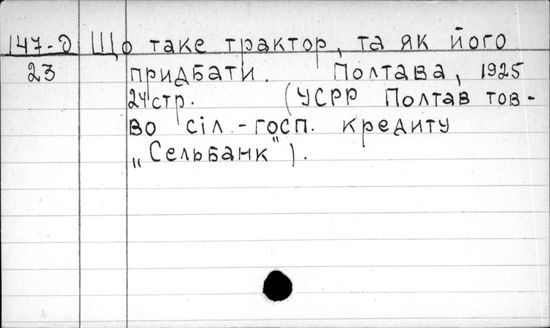 147-д Що таке трактор, та як його
23 придбати. Полтава, 1925
24 стр. (УСРР Полтав тов-
во сіл-госп. кредиту
„Сельбанк").